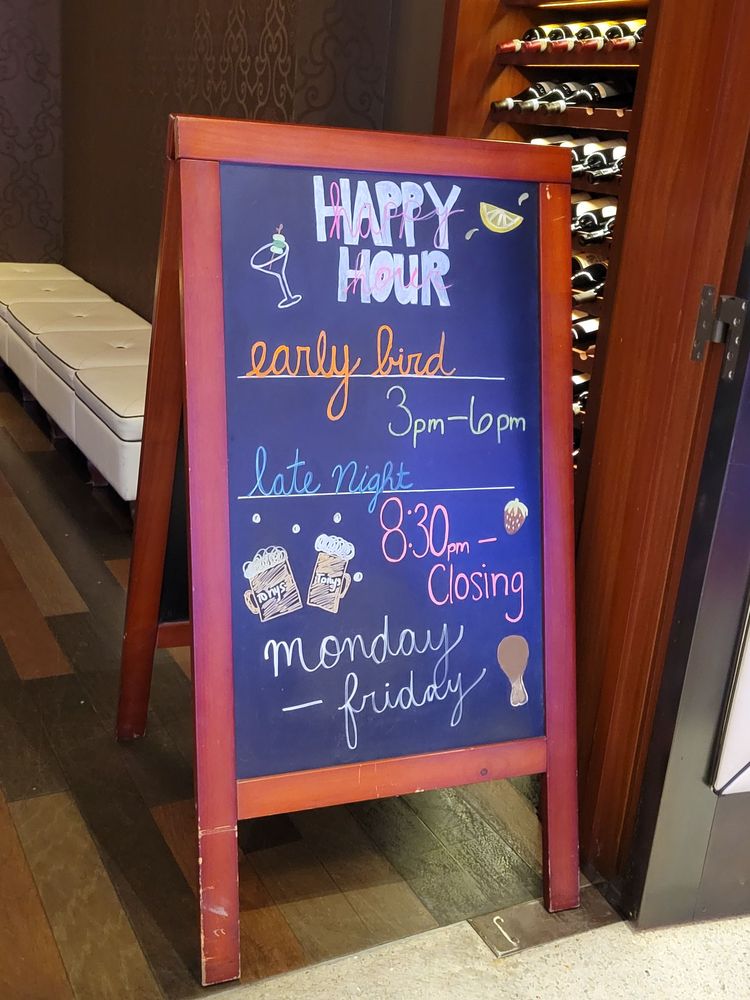 HAPPY
happy
HOUR
hour
early bird
3pm-6pm
late Night
8:30pm -
Closing
Tonys Tonys
monday
- friday